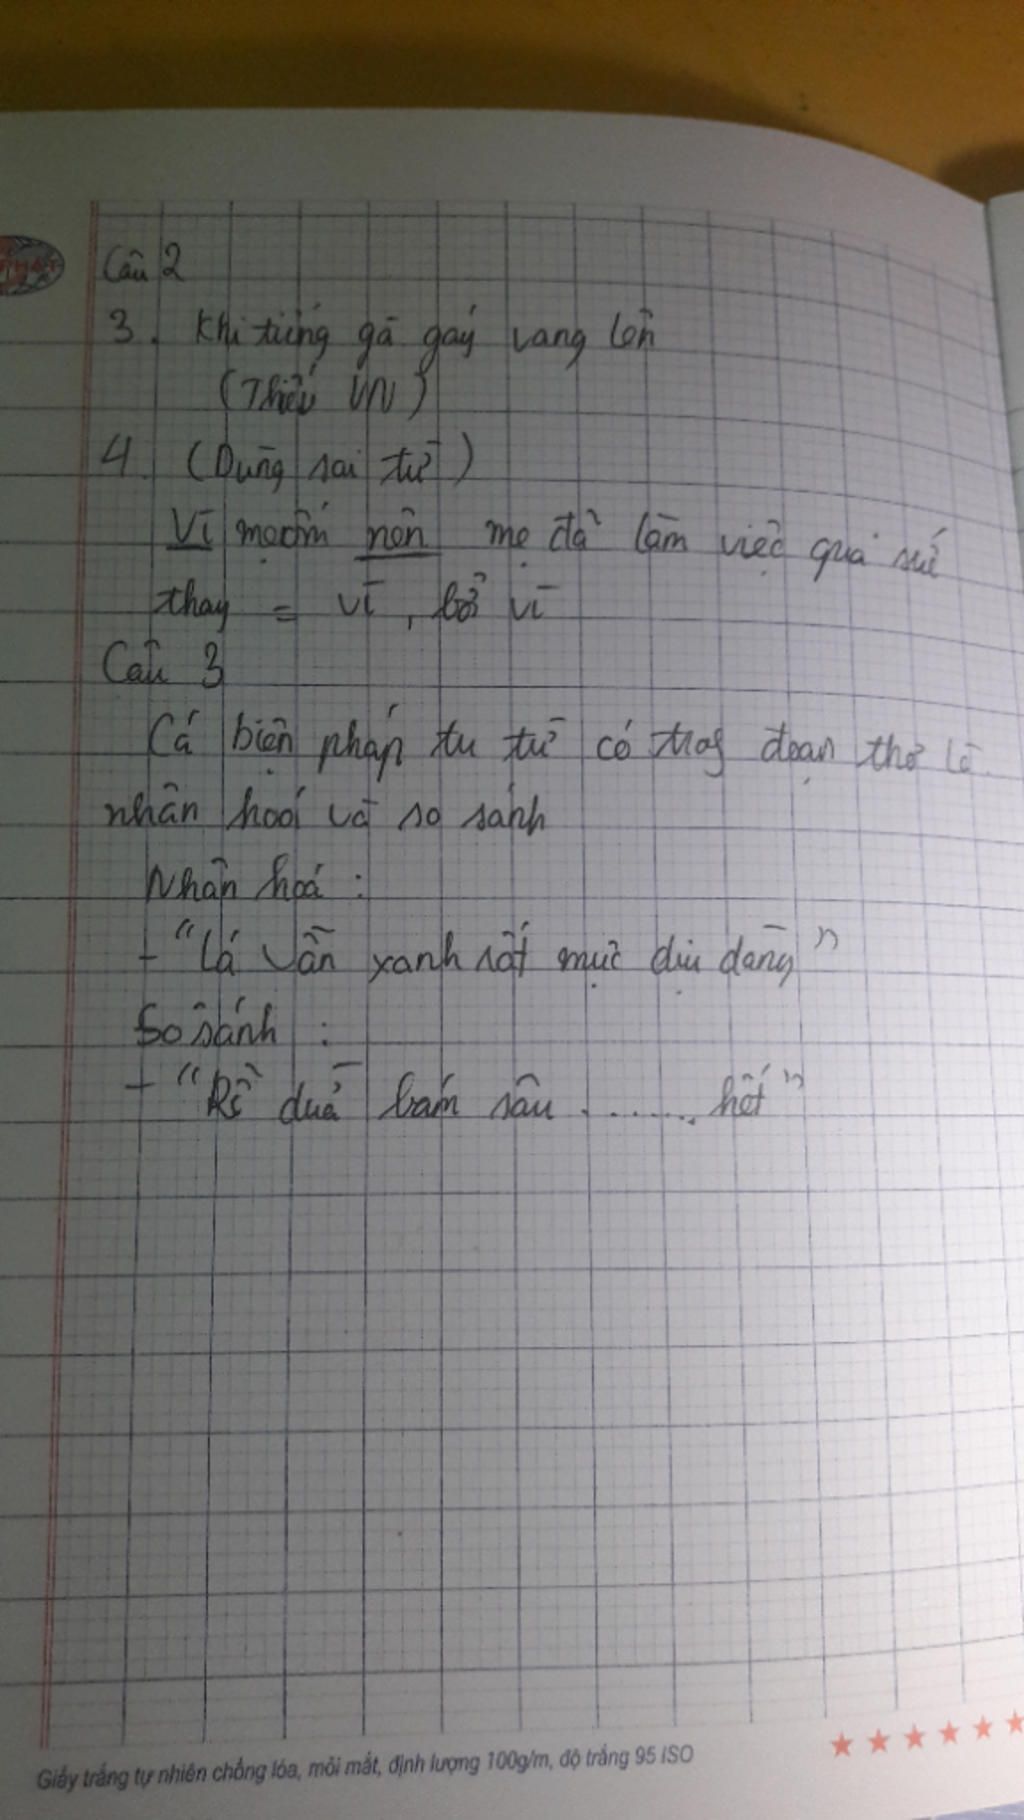 Câu 2
3. Khi tiếng gà gáy vang lên
(Thiếu VN)
4 (Dùng sai từ)
Vì mẹ ốm nên mẹ đã làm việc quá sứ
thay = vì, bởi vì
Câu 3
Cá biện pháp tu từ có trog đoạn thơ là
nhân hoá và so sánh
Nhân hoá :
+ "Lá vẫn xanh rất mực dịu dàng"
So sánh :
+ "Rễ dừa bám sâu ....... hết"
Giấy trắng tự nhiên chống lóa, mỏi mắt, định lượng 100g/m, độ trắng 95 ISO